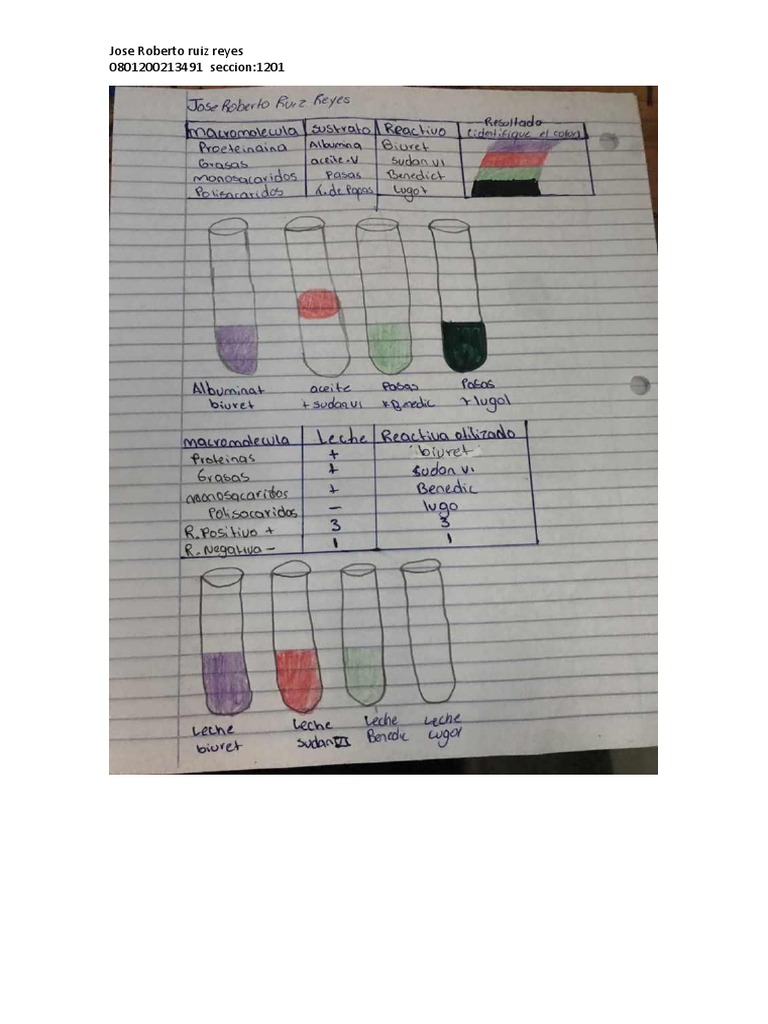 Jose Roberto ruiz reyes
0801200213491 seccion:1201
Jose Roberto Ruiz Reyes
macromolecula sustrato Reactivo Resultado (identifique el color)
Proeteinaina Albumina Biuret
Grasas aceite-V sudan VI
monosacaridos Pasas Benedict
Polisacaridos de Papas Lugot
Albuminat aceite Pasas Pasas
biuret + sudan VI + Benedic + lugol
macromolecula Leche Reactiva otilizado
Proteinas + biuret
Grasas + sudan VI.
monosacaridos + Benedic
Polisacaridos - lugo
R. Positivo + 3 3
R. Negativa - 1 1
Leche Leche Leche Leche
biuret sudan VI Benedic Lugol